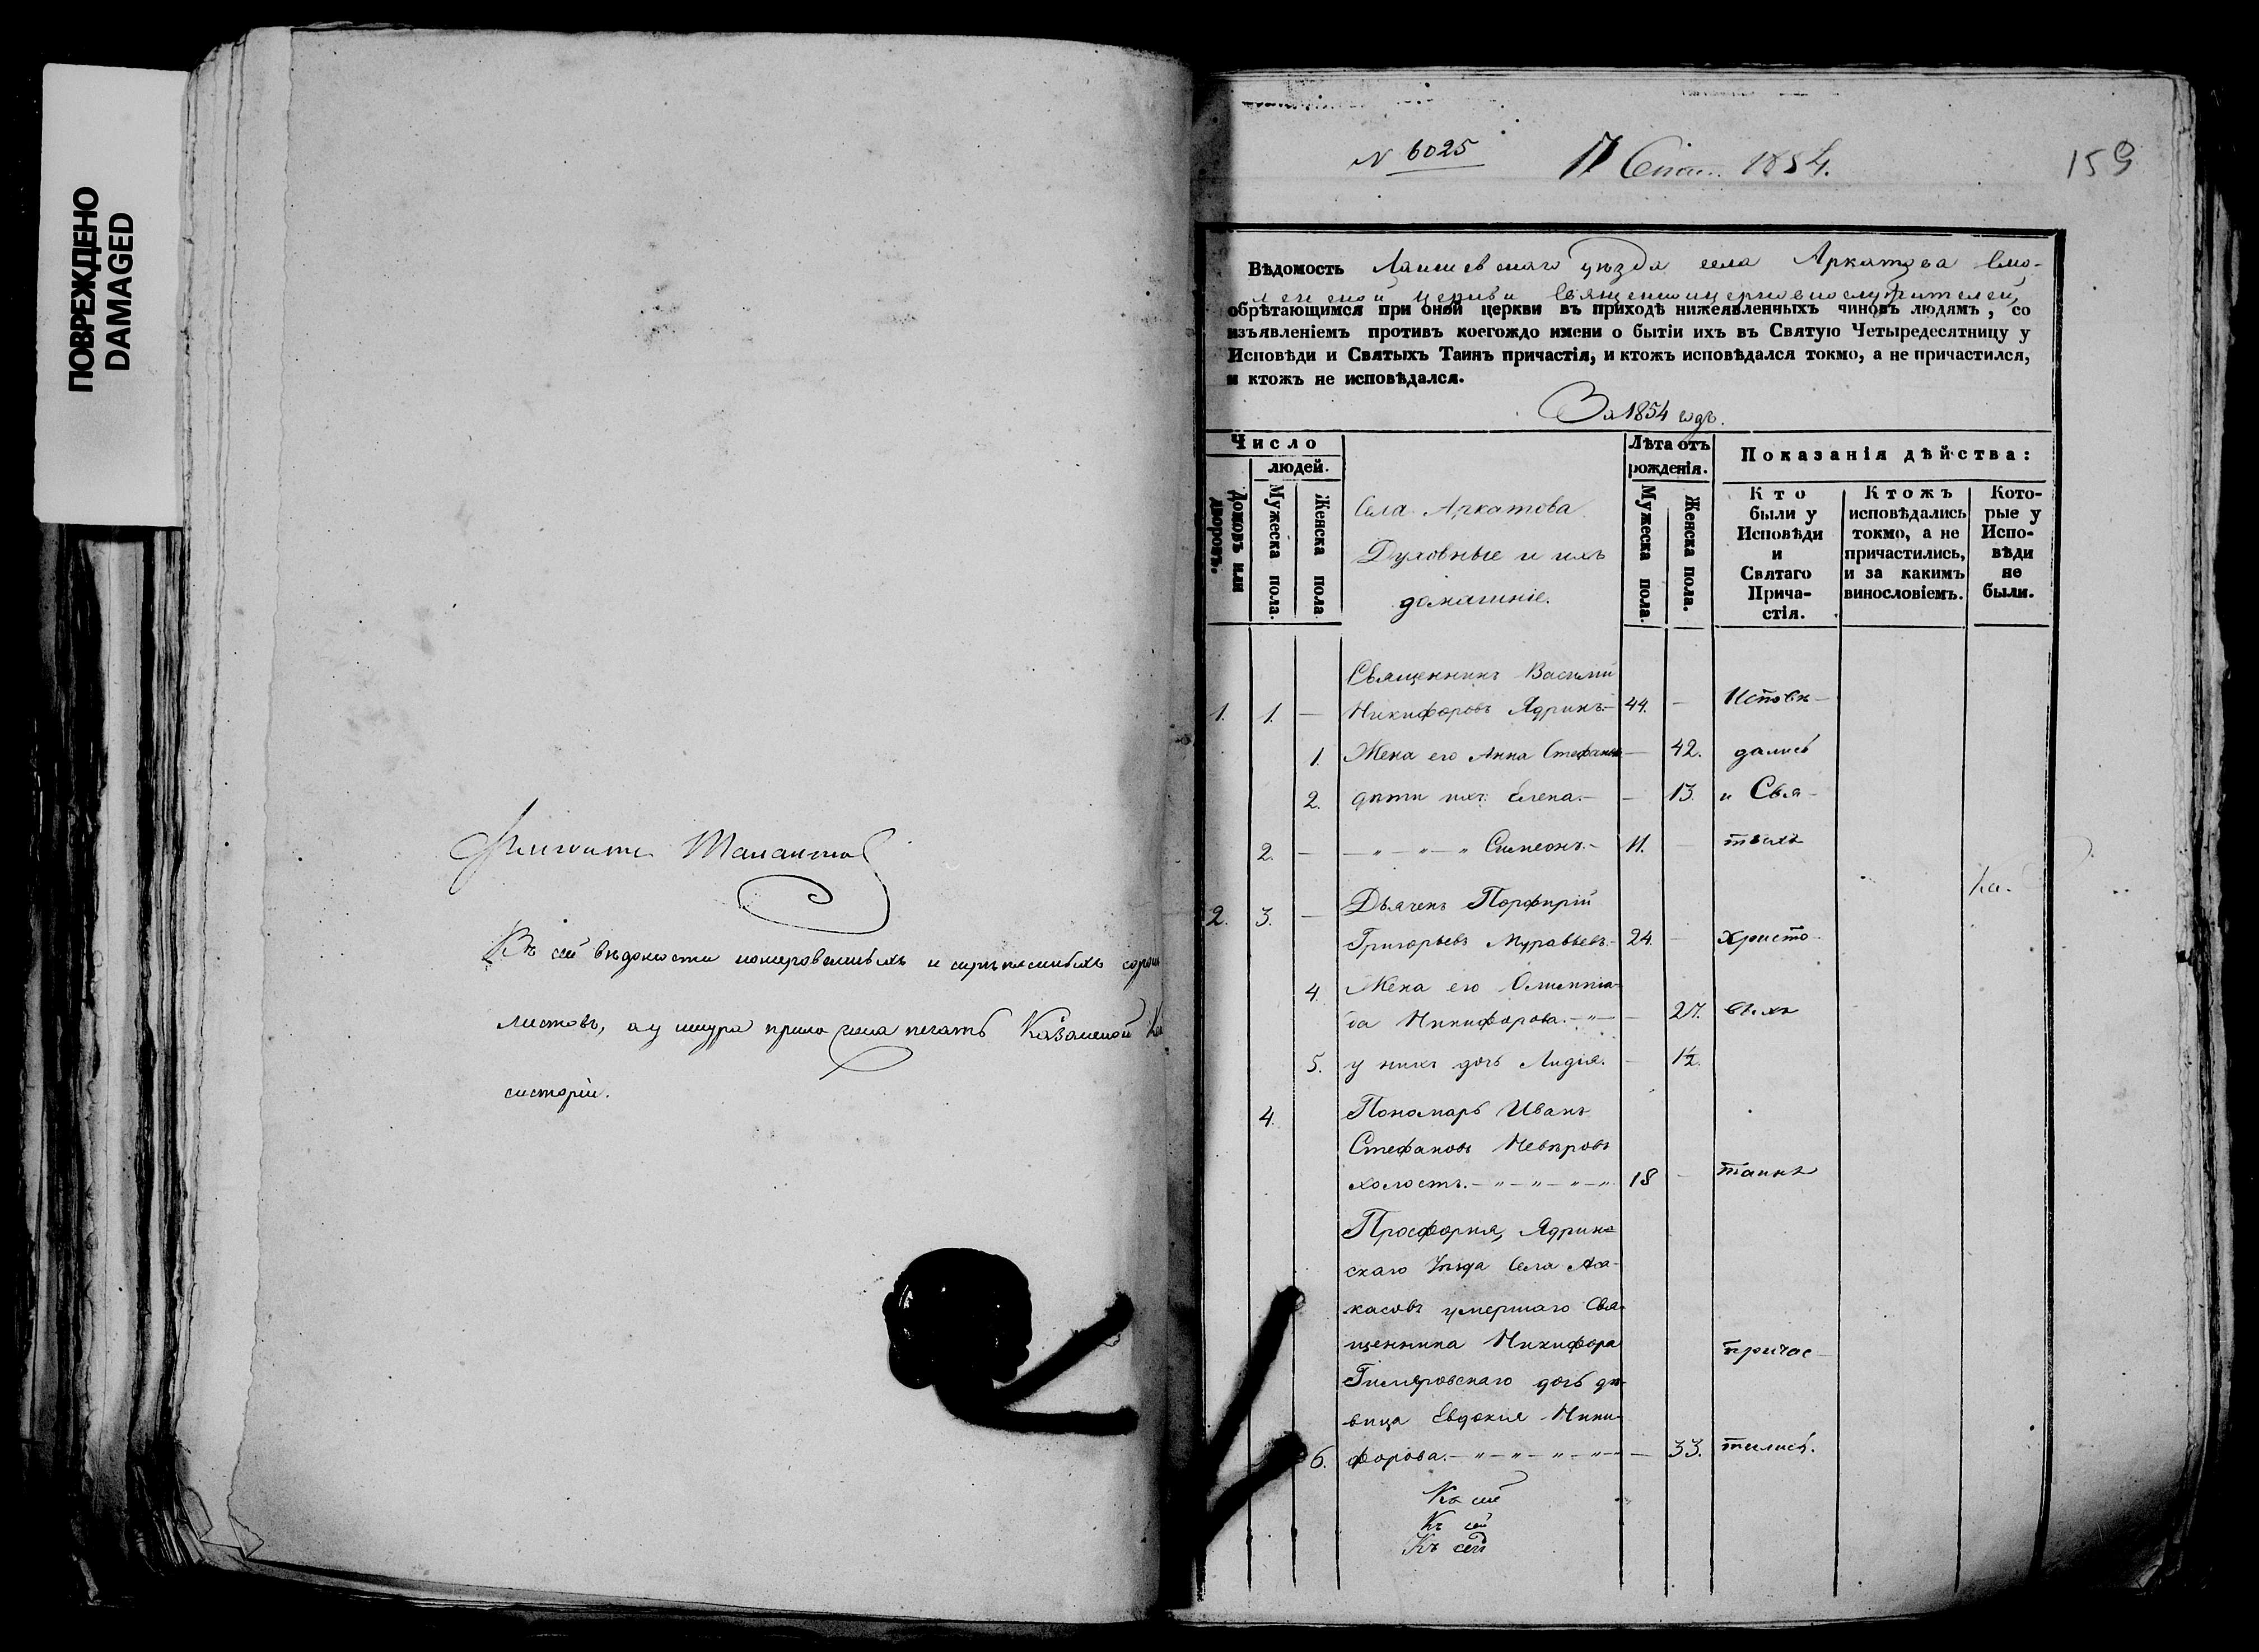 ПОВРЕЖДЕНО
DAMAGED
Въ сей вѣдомости нумерованныхъ и скрѣпленныхъ
листовъ, а у шнура приложена печать Казанской
систоріи.
N 6025
17 Сент. 1854.
159
Вѣдомость Лаишевскаго уѣзда села Аркатова Смо-
ленской церкви Священноцерковнослужителей,
обрѣтающимся при оной церкви въ приходѣ нижеявленныхъ чиновъ людямъ, со
изъявленіемъ противъ коегождо имени о бытіи ихъ въ Святую Четыредесятницу у
Исповѣди и Святыхъ Таинъ причастія, и ктожъ исповѣдался токмо, а не причастился,
и ктожъ не исповѣдался.
За 1854 годъ.
Число
людей.
Домовъ или дворовъ.
Мужеска пола.
Женска пола.
Села Аркатова
Духовные и ихъ
домашніе.
Лѣта отъ
рожденія.
Мужеска пола.
Женска пола.
Показанія дѣйства:
Кто
были у
Исповѣди
и
Святаго
Прича-
стія.
Ктожъ
исповѣдались
токмо, а не
причастились,
и за какимъ
винословіемъ.
Кото-
рые у
Испо-
вѣди
не
были.
Священникъ Василій
1. 1. — Никифоровъ Ядринъ.— 44. — Исповѣ-
1. Жена его Анна Стефанова — 42. дались
2. дѣти ихъ: Елена.— — 13. и Свя-
2. — — " — " — " Симеонъ.— 11. — тыхъ
2. 3. — Дьячекъ Порфирій
Григорьевъ Муравьевъ.— 24. — Христо-
4. Жена его Олимпіа-
да Никифорова.—"— — 27. выхъ
5. у нихъ дочь Лидія. — 1½.
4. Пономарь Иванъ
Стефановъ Невѣровъ
холостъ.—"—"—"—" 18 — таинъ
Просфорня, Ядрин-
скаго Уѣзда Села Аса-
касовъ умершаго Свя-
щенника Никифора
причас-
дочь дѣ-
вица Евдокія Ники-
6. форова.—"—"—"—"— — 33. тились.
Къ сей
Къ сей
Къ сей